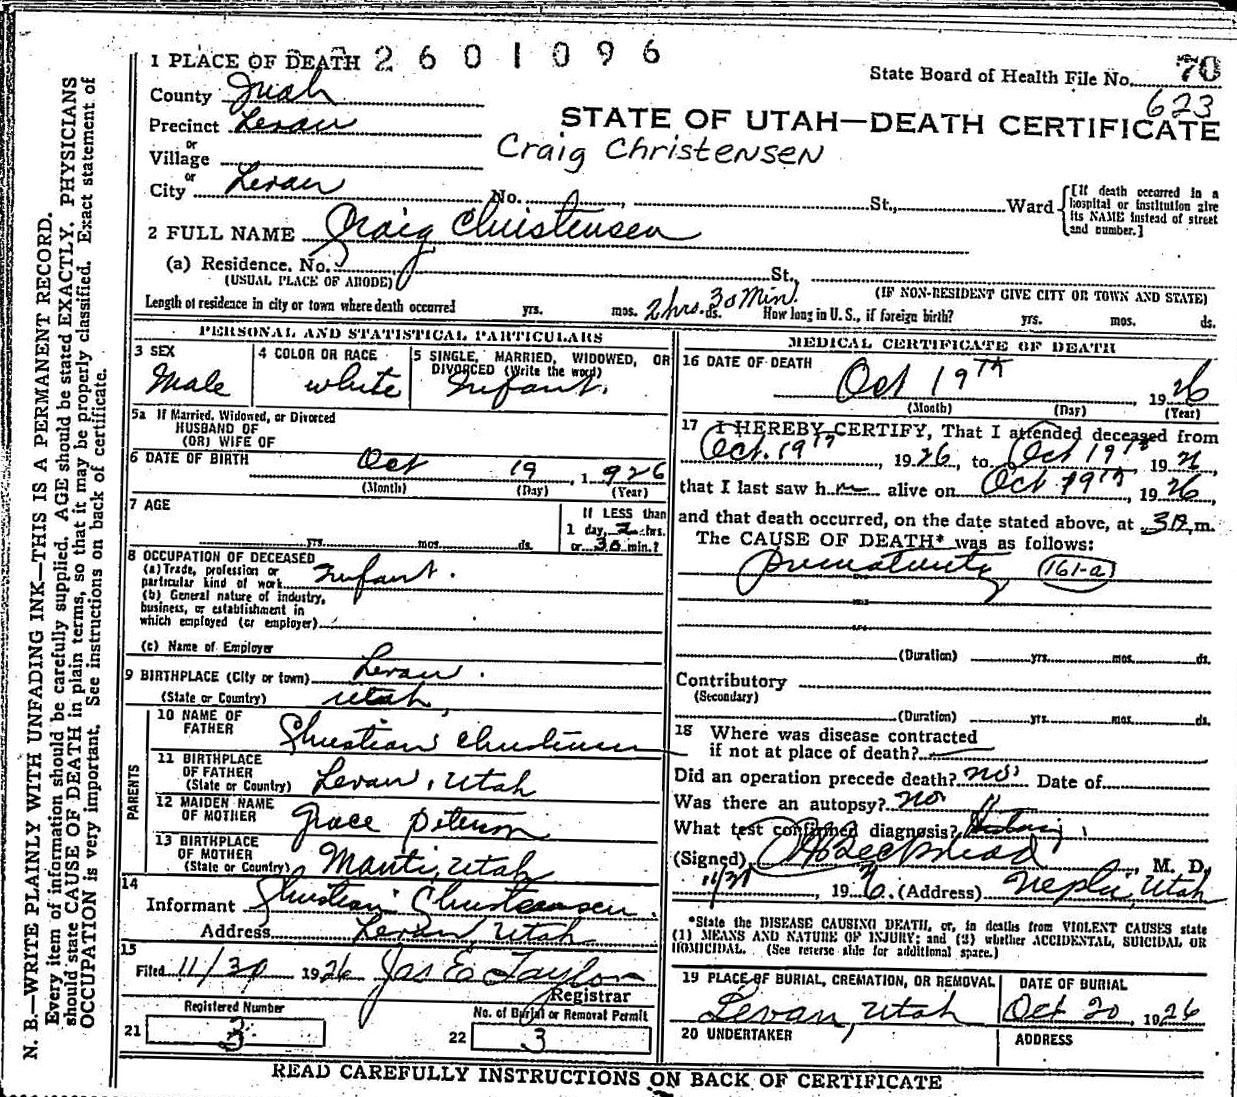 N. B.—WRITE PLAINLY WITH UNFADING INK—THIS IS A PERMANENT RECORD.
Every item of information should be carefully supplied. AGE should be stated EXACTLY. PHYSICIANS
should state CAUSE OF DEATH in plain terms, so that it may be properly classified. Exact statement of
OCCUPATION is very important. See instructions on back of certificate.
1 PLACE OF DEATH 2601096
State Board of Health File No. 70
623
County Juab
Precinct Levan
STATE OF UTAH—DEATH CERTIFICATE
or
Village
Craig Christensen
or
City Levan No. St., Ward
[If death occurred in a
hospital or institution give
its NAME instead of street
and number.]
2 FULL NAME Craig Christensen
(a) Residence. No. St.,
(USUAL PLACE OF ABODE) (IF NON-RESIDENT GIVE CITY OR TOWN AND STATE)
Length of residence in city or town where death occurred yrs. mos. 2 hrs. 30 Min. ds. How long in U. S., if foreign birth? yrs. mos. ds.
PERSONAL AND STATISTICAL PARTICULARS
3 SEX
Male
4 COLOR OR RACE
white
5 SINGLE, MARRIED, WIDOWED, OR
DIVORCED (Write the word)
Infant.
5a If Married, Widowed, or Divorced
HUSBAND OF
(OR) WIFE OF
6 DATE OF BIRTH Oct 19, 1926
(Month) (Day) (Year)
7 AGE
yrs. mos. ds.
If LESS than
1 day, 2 hrs.
or 30 min.?
8 OCCUPATION OF DECEASED
(a) Trade, profession or
particular kind of work Infant.
(b) General nature of industry,
business, or establishment in
which employed (or employer)
(c) Name of Employer
9 BIRTHPLACE (City or town) Levan.
(State or Country) Utah,
PARENTS
10 NAME OF
FATHER Christian Christensen
11 BIRTHPLACE
OF FATHER
(State or Country) Levan, Utah
12 MAIDEN NAME
OF MOTHER Grace Peterson
13 BIRTHPLACE
OF MOTHER
(State or Country) Manti, Utah
14
Informant Christian Christensen.
Address Levan, Utah
15
Filed 11/30 1926 Jas E Taylor
Registrar
Registered Number
21 3
No. of Burial or Removal Permit
22 3
MEDICAL CERTIFICATE OF DEATH
16 DATE OF DEATH
Oct 19th, 1926
(Month) (Day) (Year)
17 I HEREBY CERTIFY, That I attended deceased from
Oct. 19th, 1926, to Oct 19th, 192
that I last saw h m alive on Oct 19th, 1926,
and that death occurred, on the date stated above, at m.
The CAUSE OF DEATH* was as follows:
prematurity 161-a
(Duration) yrs. mos. ds.
Contributory
(Secondary)
(Duration) yrs. mos. ds.
18 Where was disease contracted
if not at place of death?
Did an operation precede death? no Date of
Was there an autopsy? no
What test confirmed diagnosis? History
(Signed) M. D.
, 1926. (Address) Nephi, Utah
*State the DISEASE CAUSING DEATH, or, in deaths from VIOLENT CAUSES state
(1) MEANS AND NATURE OF INJURY; and (2) whether ACCIDENTAL, SUICIDAL OR
HOMICIDAL. (See reverse side for additional space.)
19 PLACE OF BURIAL, CREMATION, OR REMOVAL
Levan, Utah
DATE OF BURIAL
Oct 20, 1926
20 UNDERTAKER
ADDRESS
READ CAREFULLY INSTRUCTIONS ON BACK OF CERTIFICATE